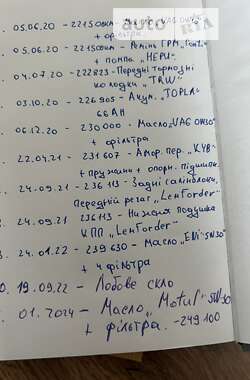 auto RIA
05.06.20 - 221500км
+ фільтра
05.06.20 - 221500км - Ремінь ГРМ
+ помпа „HEPU"
04.07.20 - 222823 - Передні тормозні
колодки „TRW"
03.10.20 - 226905 - Акум. „TOPLA"
66АН
06.12.20 - 230000 - Масло „VAG 0W30"
+ фільтра
22.04.21 - 231607 - Амор. пер. „KYB"
+ пружини + опорн. підшипн.
24.09.21 - 236113 - Задні сайлнблоки,
Передній резаг „Lemforder"
24.09.21 236113 - Нижня подушка
КПП „Lemforder"
24.01.22 - 239630 - Масло „ENI" 5W30"
+ 4 фільтра
19.09.22 - Лобове скло
01.2024 - Масло „Motul" 5W30
+ фільтра. - 249100